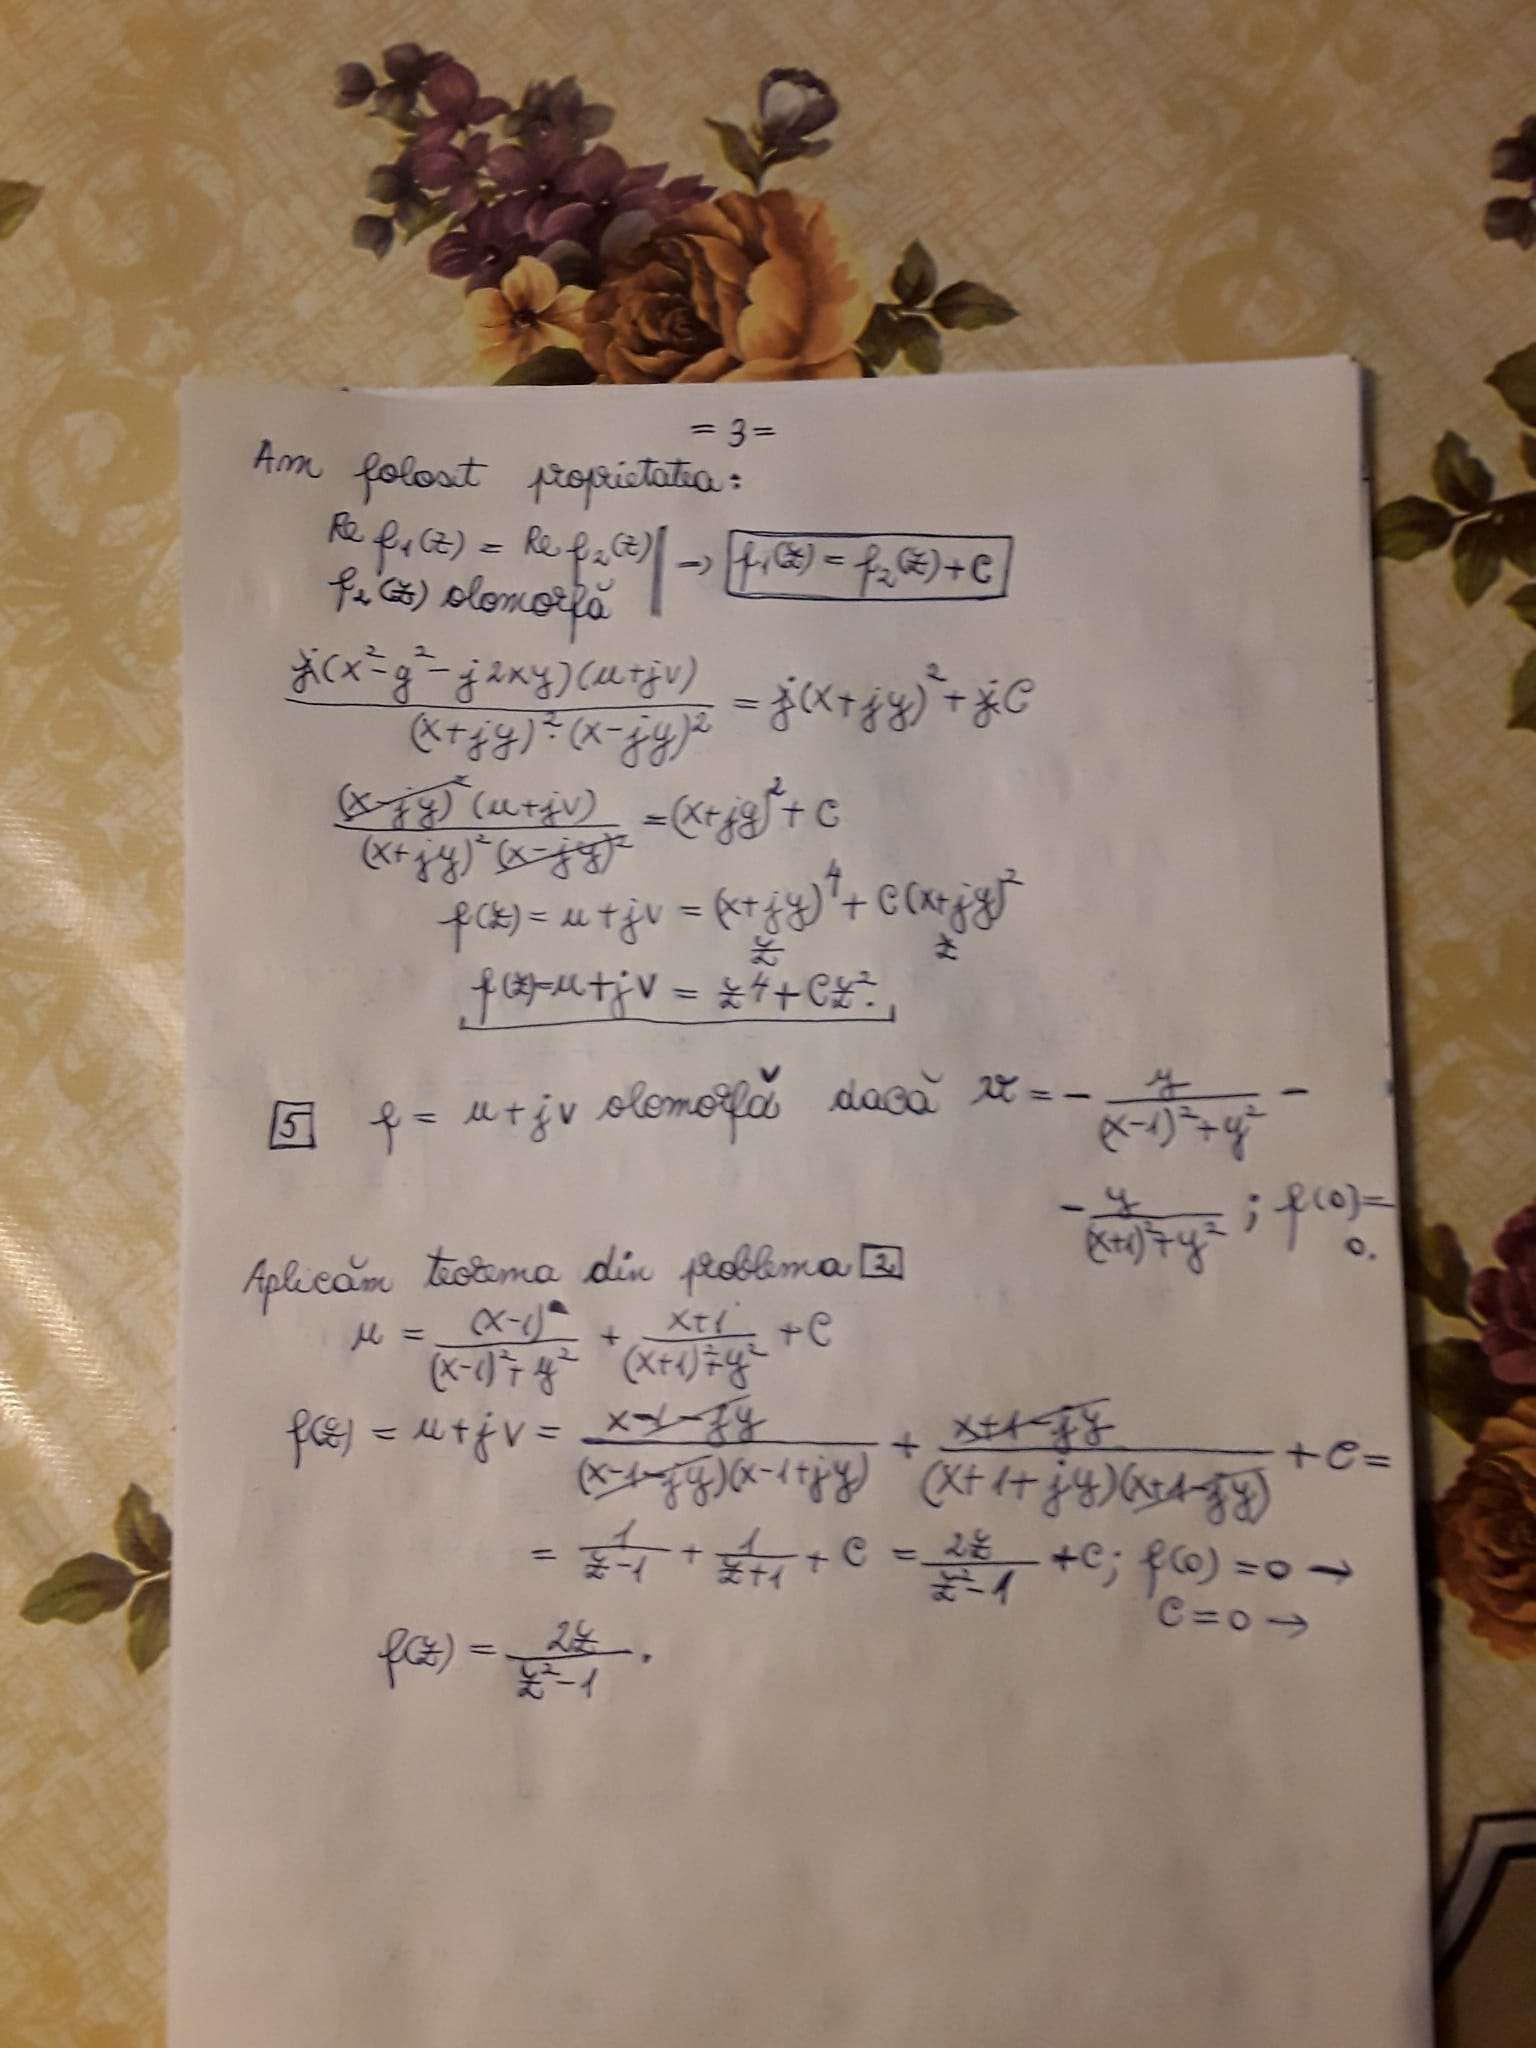 = 3 =
Am folosit proprietatea:
Re f₁(z) = Re f₂(z) | → f₁(z) = f₂(z) + C
f₂(z) olomorfă
j(x²-y²-j2xy)(u+jv) / (x+jy)²·(x-jy)² = j(x+jy)² + jC
(x-jy)²(u+jv) / (x+jy)²(x-jy)² = (x+jy)² + C
f(z) = u+jv = (x+jy)⁴ + C(x+jy)²
z z
f(z)=u+jv = z⁴ + Cz².
5 f = u+jv olomorfă dacă v = - y/((x-1)²+y²) -
- y/((x+1)²+y²) ; f(0)=
0.
Aplicăm teorema din problema 2
u = (x-1)/((x-1)²+y²) + (x+1)/((x+1)²+y²) + C
f(z) = u+jv = (x-1-jy)/((x-1-jy)(x-1+jy)) + (x+1-jy)/((x+1+jy)(x+1-jy)) + C =
= 1/(z-1) + 1/(z+1) + C = 2z/(z²-1) + C; f(0) = 0 →
C = 0 →
f(z) = 2z/(z²-1) .